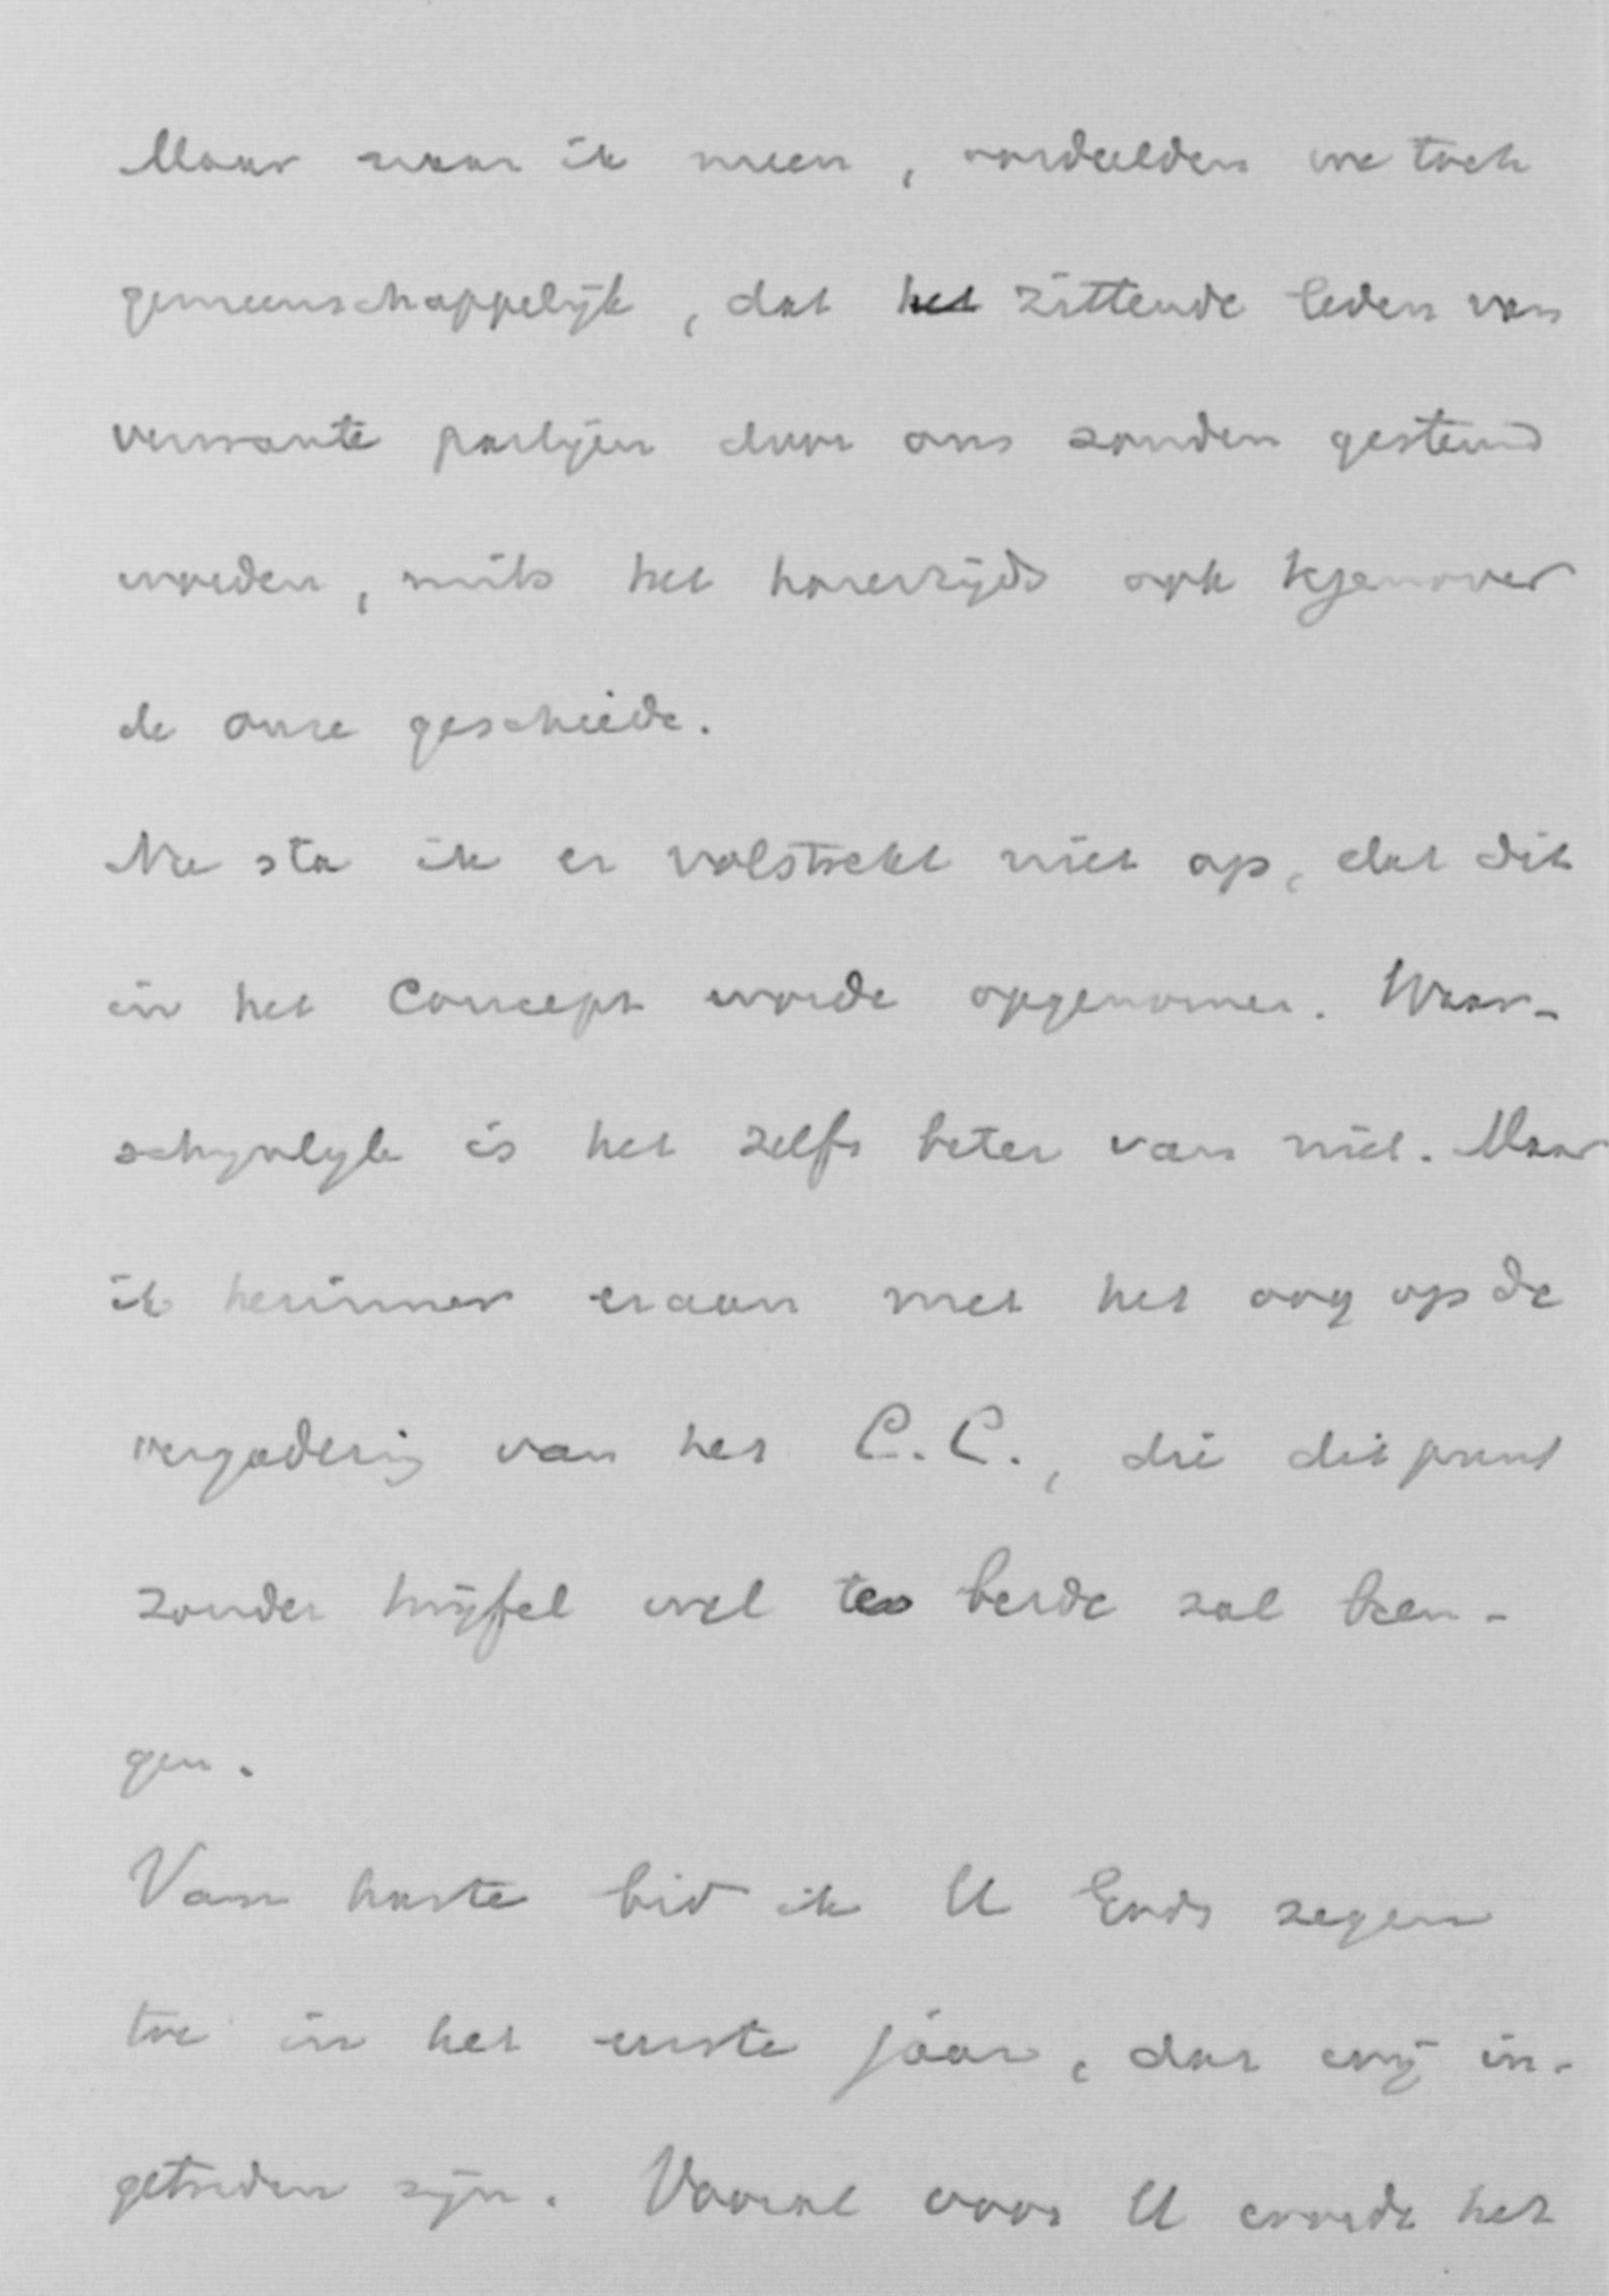 Maar naar ik meen, oordeelden we toch
gemeenschappelijk, dat het zittende leden van
verwante partijen door ons zouden gesteund
worden, mits het harerzijds ook tegenover
de onze geschiede.
Nu sta ik er volstrekt niet op, dat dit
in het Concept worde opgenomen. Waar-
schynlyk is het zelfs beter van niet. Maar
ik herinner eraan met het oog op de
vergadering van het C.C., die dit punt
zonder twijfel wel te berde zal bren-
gen.
Van harte bid ik U Gods zegen
toe in het eerste jaar, dat wij in-
getreden zijn. Vooral voor U worde het